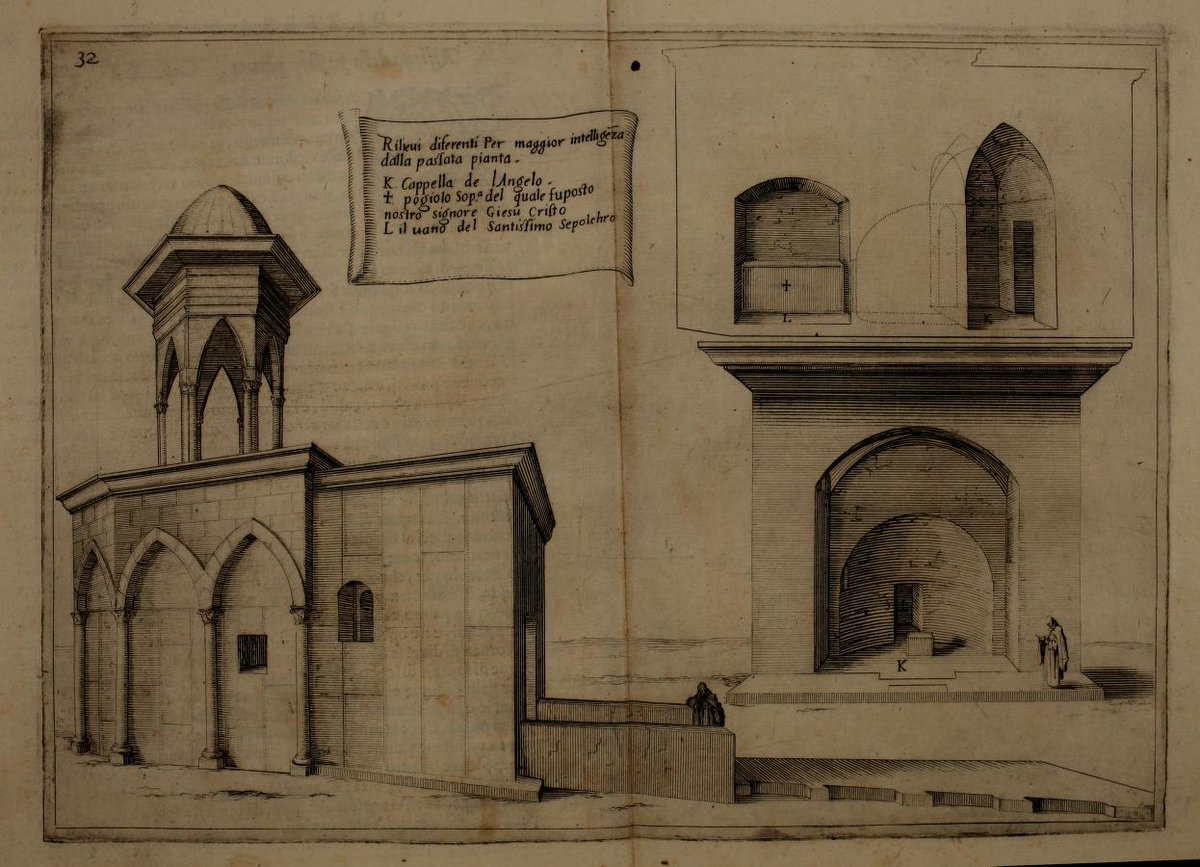 32
Rilieui diferenti Per maggior intelligēza
dalla passata pianta.
K Cappella de lAngelo.
✝ pogiolo Sop.ª del quale fu posto
nostro signore Giesù Cristo
L il uano del Santissimo Sepolchro
✝
L
K
L
K